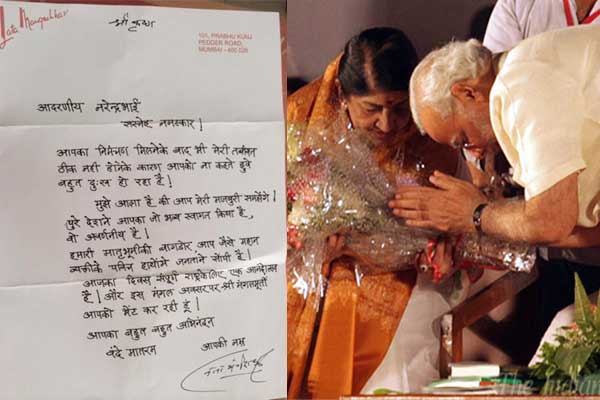 Lata Mangeshkar
श्री कृष्ण
101, PRABHU KUNJ
PEDDER ROAD,
MUMBAI - 400 026
आदरणीय नरेन्द्रभाई
सस्नेह नमस्कार!
आपका निमंत्रण मिलनेके बाद भी मेरी तबीयत
ठीक नहीं होनेके कारण आपको ना कहते हुये
बहुत दुःख हो रहा है!
मुझे आशा है की आप मेरी मजबुरी समझेंगे!
पुरे देशने आपका जो भव्य स्वागत किया है,
वो अवर्णनीय है!
हमारी मातृभूमीकी बागडोर आप जैसे महान
व्यक्तीके पवित्र हाथोंमे जनताने सौंपी है!
आजका दिवस संपूर्ण राष्ट्रकेलिए एक आनंदोत्सव
है! और इस मंगल अवसरपर श्री मंगलमूर्ती
आपको भेंट कर रही हूं!
आपका बहुत बहुत अभिनंदन
वंदे मातरम आपकी नम्र
लता मंगेशकर
The Indian